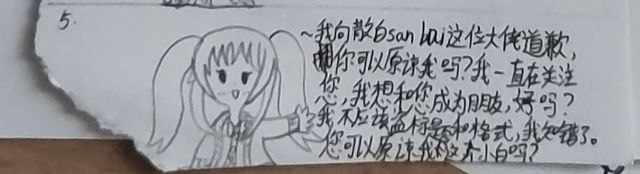 5.
~我向散白san bai这位大佬道歉,
你可以原谅我吗?我一直在关注
您,我想和您成为朋友,好吗?
我不应该盗标题和格式,我知错了。
您可以原谅我这个小白吗?